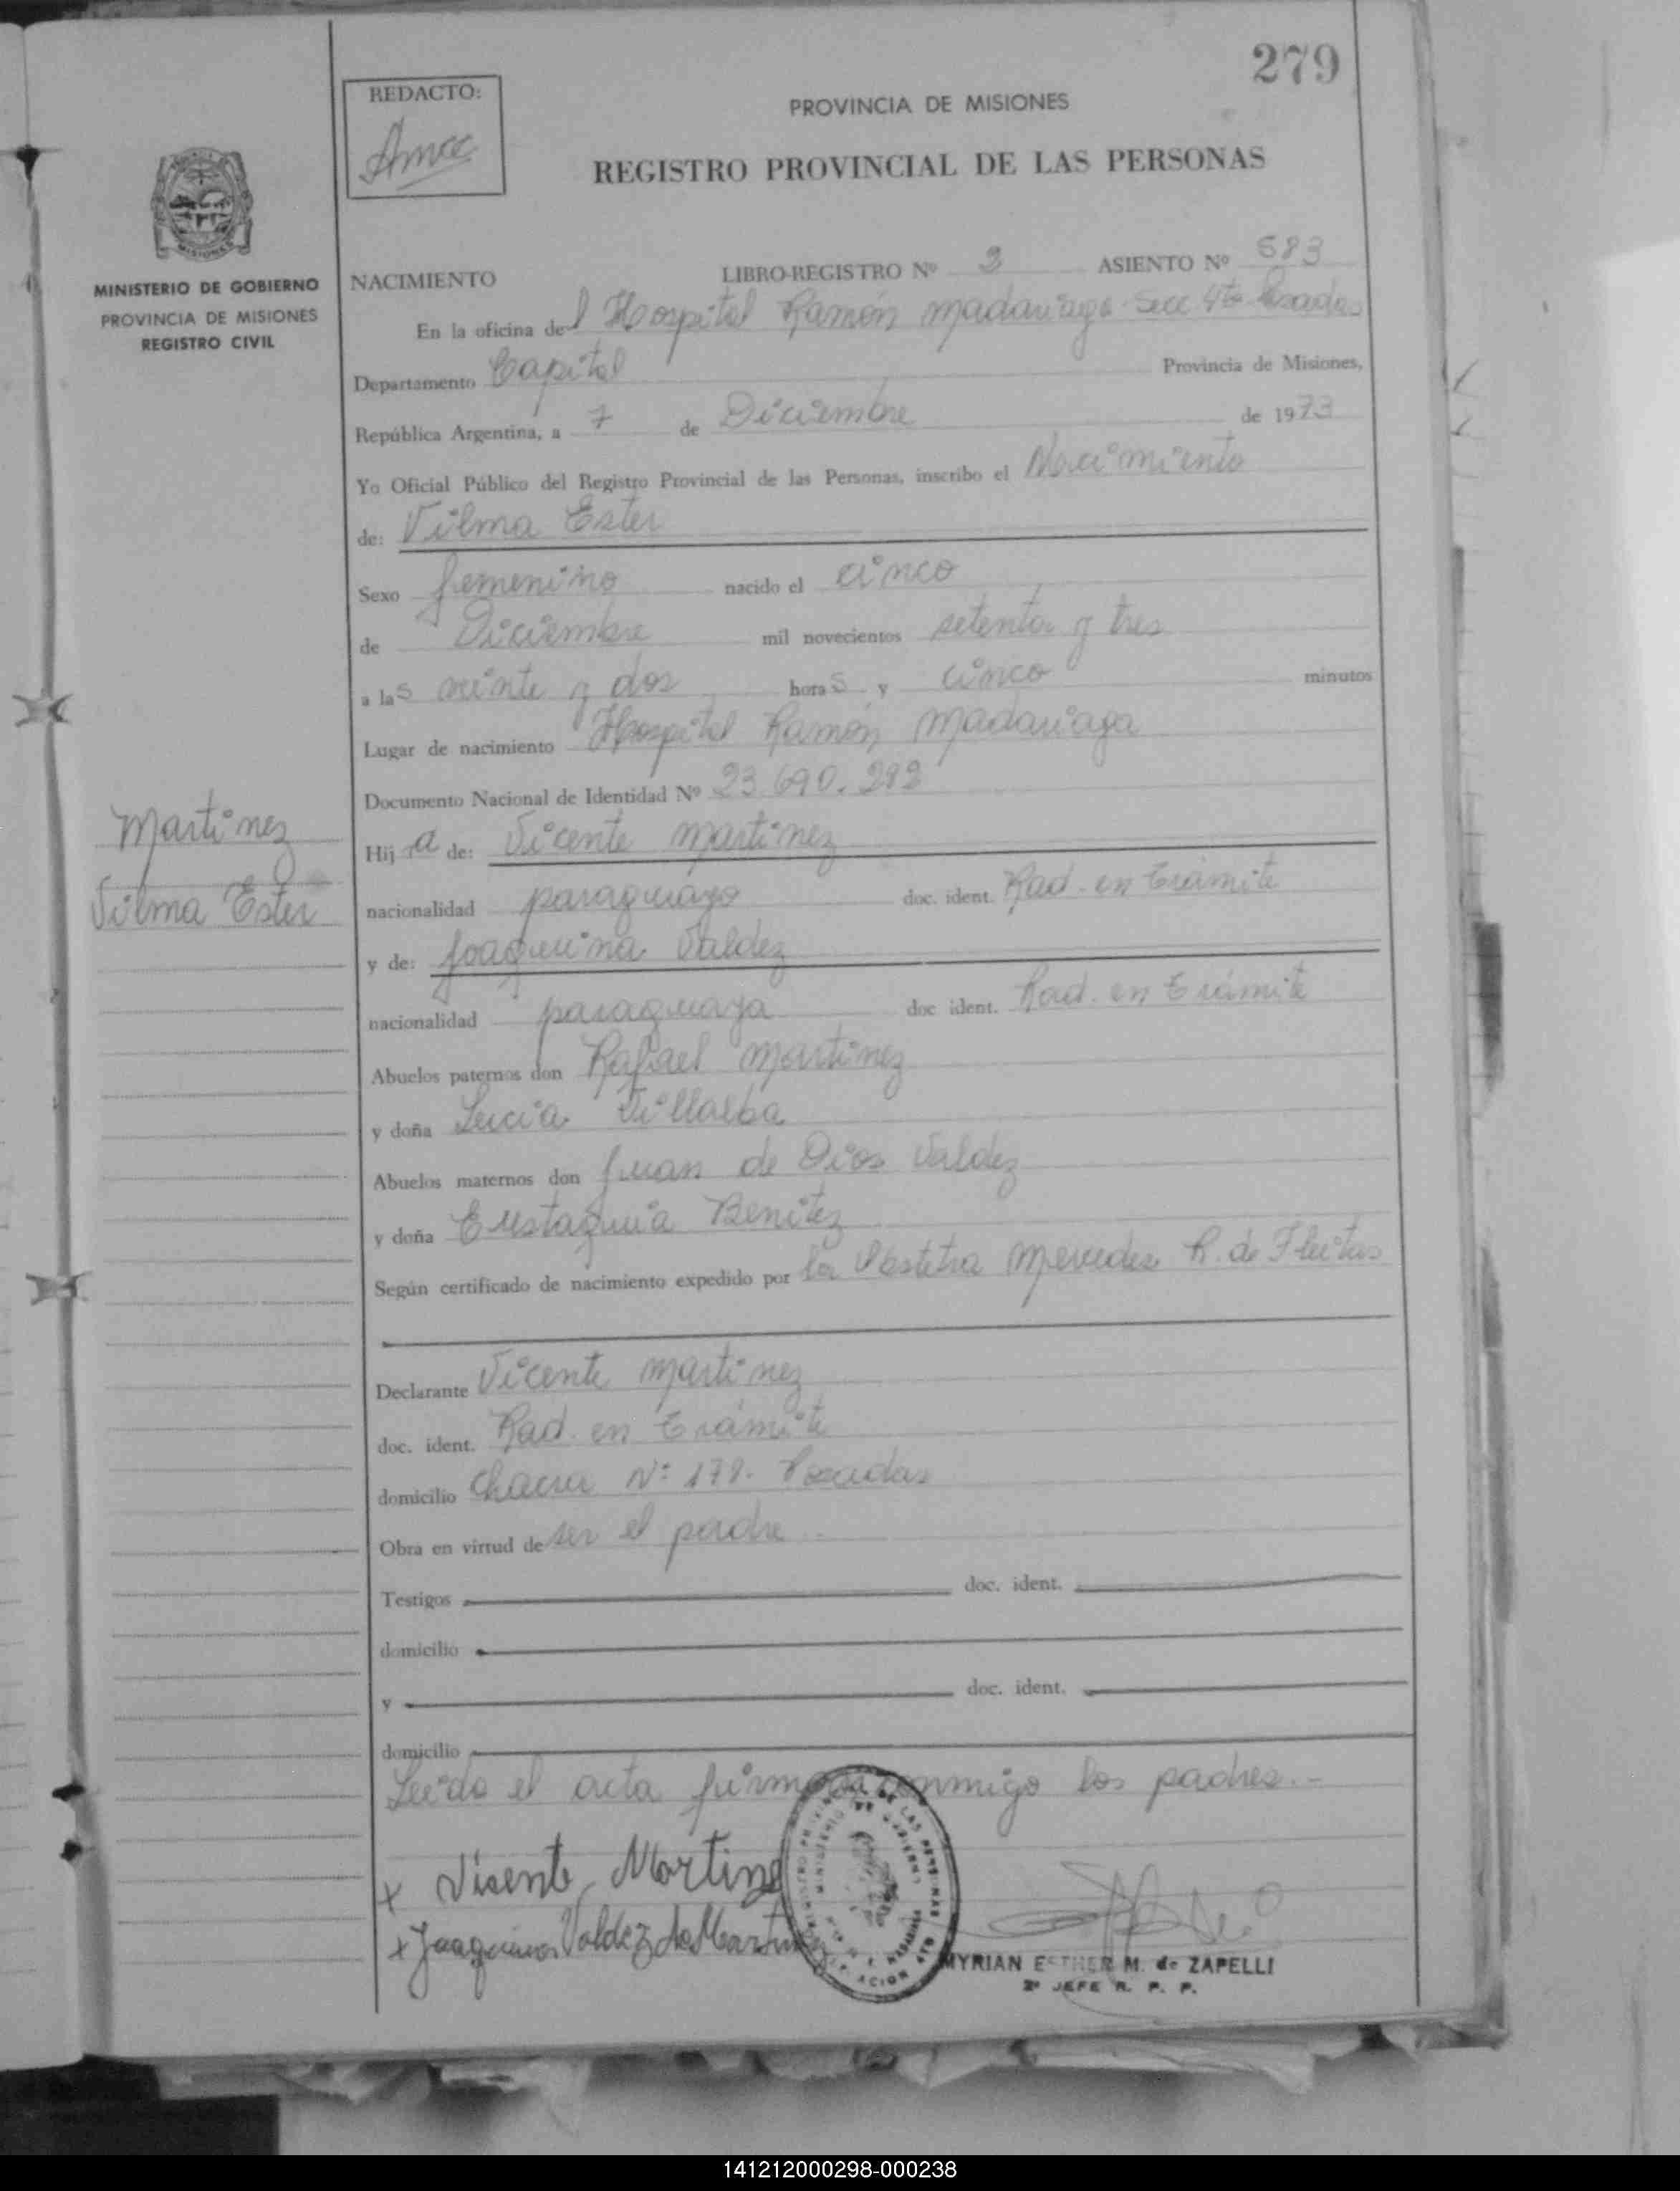 279
REDACTO:
PROVINCIA DE MISIONES
REGISTRO PROVINCIAL DE LAS PERSONAS
MISIONES
MINISTERIO DE GOBIERNO
PROVINCIA DE MISIONES
REGISTRO CIVIL
NACIMIENTO LIBRO-REGISTRO Nº 3 ASIENTO Nº 583
En la oficina del Hospital Ramón Madariaga Secc 4ta Posadas
Departamento Capital Provincia de Misiones,
República Argentina, a 7 de Diciembre de 1973
Yo Oficial Público del Registro Provincial de las Personas, inscribo el Nacimiento
de: Vilma Ester
Sexo femenino nacido el cinco
de Diciembre mil novecientos setenta y tres
a las veinte y dos horas y cinco minutos
Lugar de nacimiento Hospital Ramón Madariaga
Documento Nacional de Identidad Nº 23.690.292
Martinez
Vilma Ester
Hija de: Vicente Martinez
nacionalidad paraguayo doc. ident. Rad. en trámite
y de: Joaquina Valdez
nacionalidad paraguaya doc ident. Rad. en trámite
Abuelos paternos don Rafael Martinez
y doña Lucia Villalba
Abuelos maternos don Juan de Dios Valdez
y doña Eustaquia Benitez
Según certificado de nacimiento expedido por la Obstetra Mercedes R. de Fleitas
Declarante Vicente Martinez
doc. ident. Rad. en trámite
domicilio Chacra Nº 179. Posadas
Obra en virtud de ser el padre
Testigos doc. ident.
domicilio
y doc. ident.
domicilio
Leida el acta firman conmigo los padres.-
x Visente Martinez
x Joaquina Valdez de Martinez
MYRIAN ESTHER M. de ZAPELLI
2º JEFE R. P. P.
141212000298-000238